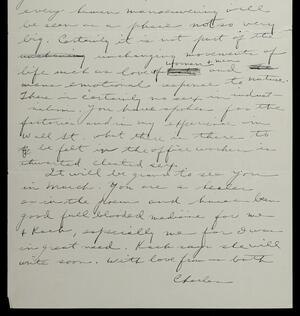 every human maneuvering will
be seen as a phase not so very
big. Certainly it is not part of the
unchanging movements of
life such as love of women & men and
mans emotional response to nature.
There is certainly no sex in indust-
rialism. You have spoken for the
factories and in my experience in
Wall St. what there is there to
be felt in the office worker is
thwarted cheated sex.
It will be grand to see you
in March. You are a healer
as in the poem and have been
good full blooded medicine for me
& Rack, especially me for I was
in great need. Rack says she will
write soon. With love from us both
Charles